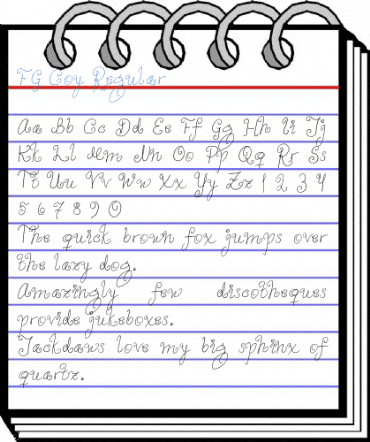 FG Coy Regular
Aa Bb Cc Dd Ee Ff Gg Hh Ii Jj
Kk Ll Mm Nn Oo Pp Qq Rr Ss
Tt Uu Vv Ww Xx Yy Zz 1 2 3 4
5 6 7 8 9 0
The quick brown fox jumps over
the lazy dog.
Amazingly few discotheques
provide jukeboxes.
Jackdaws love my big sphinx of
quartz.